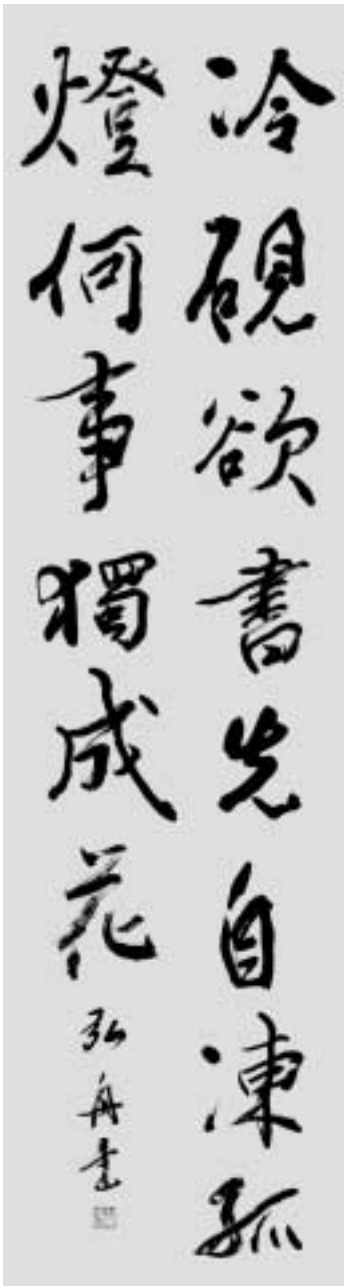 冷硯欲書先自凍孤
燈何事獨成花
弘舟書